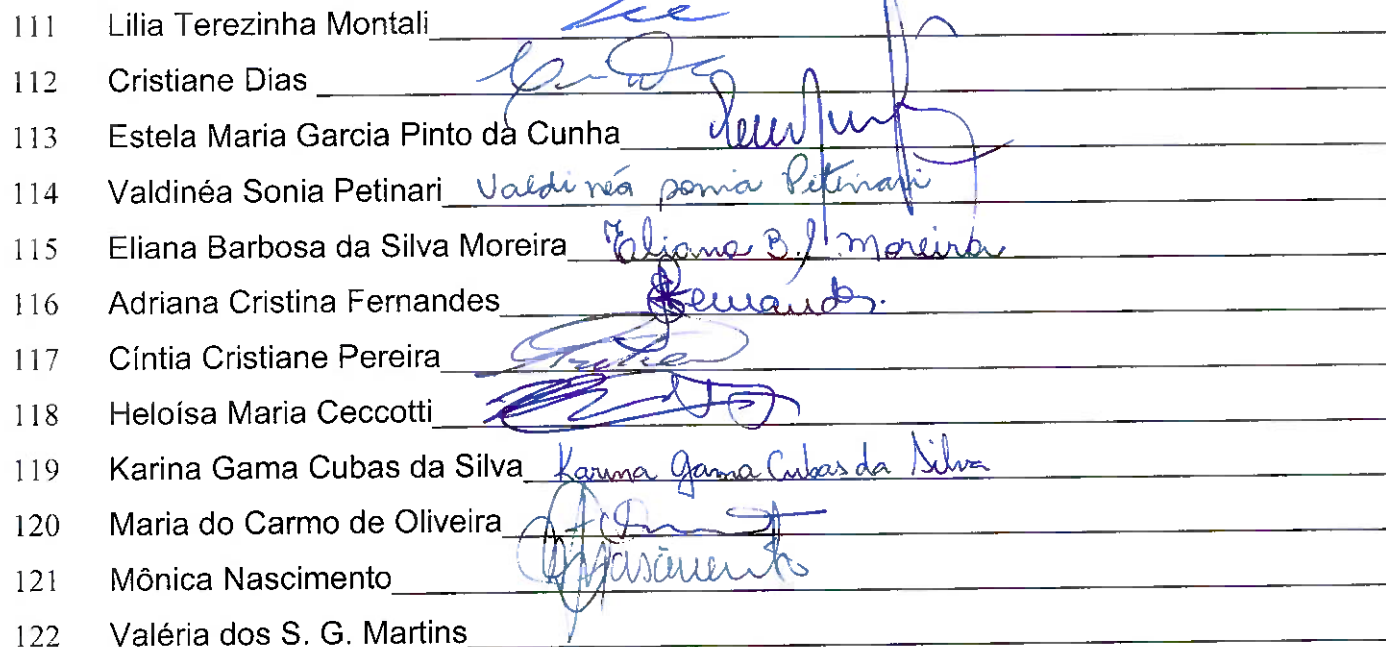 111 Lilia Terezinha Montali
112 Cristiane Dias
113 Estela Maria Garcia Pinto da Cunha
114 Valdinéa Sonia Petinari Valdinéa sonia Petinari
115 Eliana Barbosa da Silva Moreira Eliana B. S. Moreira
116 Adriana Cristina Fernandes Fernandes.
117 Cíntia Cristiane Pereira
118 Heloísa Maria Ceccotti
119 Karina Gama Cubas da Silva Karina Gama Cubas da Silva
120 Maria do Carmo de Oliveira
121 Mônica Nascimento Nascimento
122 Valéria dos S. G. Martins